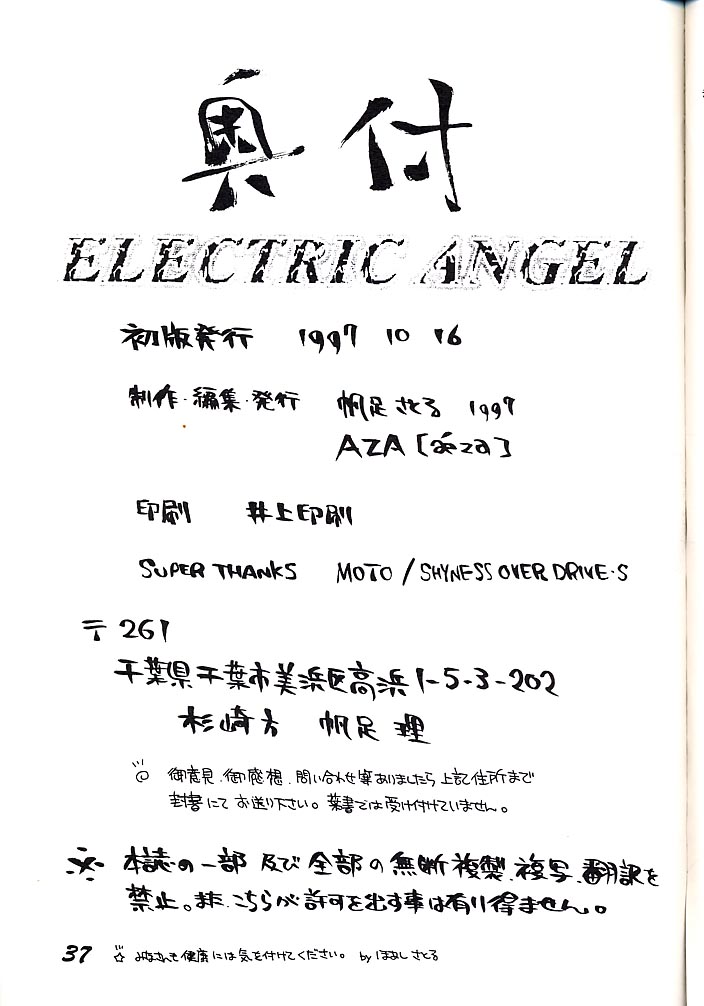 奥付
ELECTRIC ANGEL
初版発行 1997 10 16
制作・編集・発行 帆足さとる 1997
AZA [あざ]
印刷 井上印刷
SUPER THANKS MOTO / SHYNESS OVER DRIVE・S
〒261
千葉県千葉市美浜区高浜1-5-3-202
杉崎方 帆足 理
御意見、御感想、問い合わせ等ありましたら上記住所まで
封書にてお送り下さい。葉書では受け付けていません。
※ 本誌の一部及び全部の無断複製、複写、翻訳を
禁止。また、こちらが許可を出す事は有り得ません。
37 みなさんも健康には気を付けてください。 by ほあしさとる